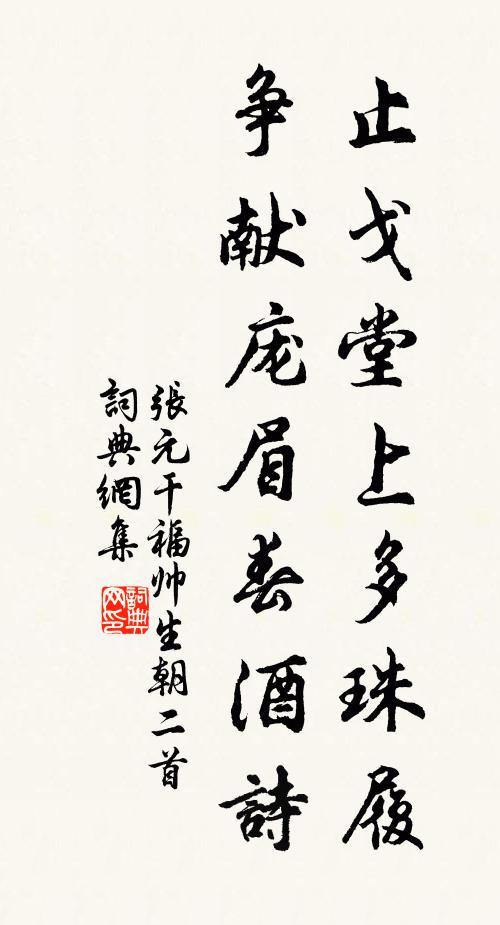 止戈堂上多珠履
争献庞眉春酒詩
張元干福帅生朝二首
詞典網集
詞典
网印